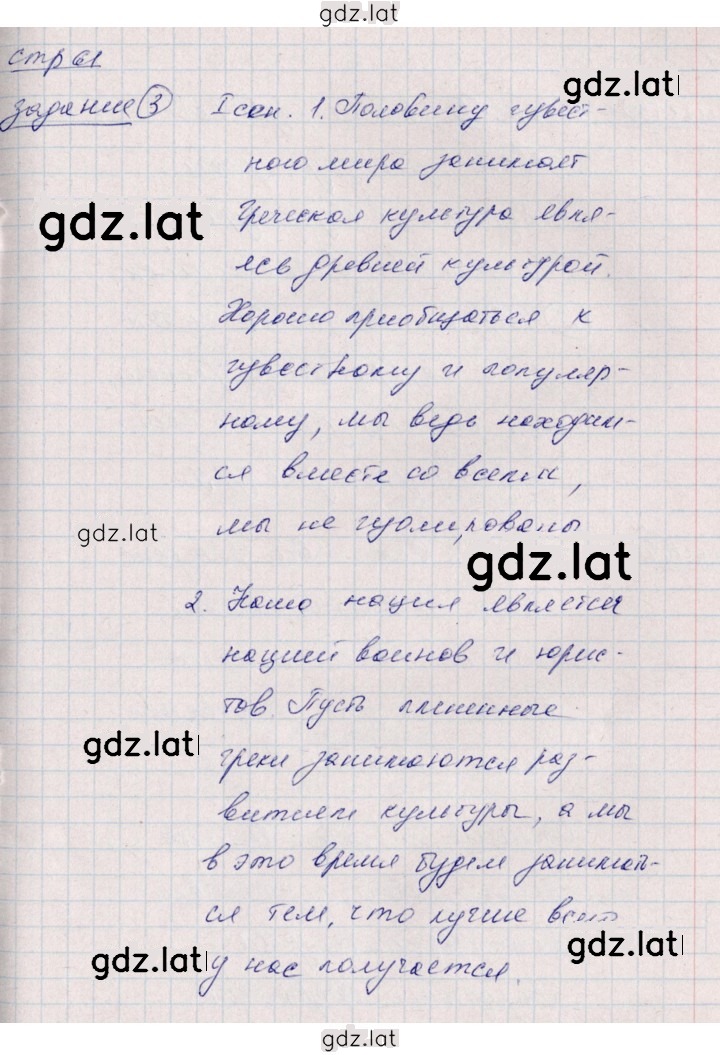 gdz.lat
стр 61
gdz.lat
задание 3 I сен. 1. Половину извест-
ного мира занимает
gdz.lat
Греческая культура явля-
ясь древней культурой.
Хорошо приобщаться к
известному и популяр-
ному, мы ведь находим-
ся вместе со всеми,
gdz.lat
мы не изолированы
gdz.lat
2. Наша нация является
нацией воинов и юрис-
тов Пусть пленные
gdz.lat
греки занимаются раз-
витием культуры, а мы
в это время будем занимать-
ся тем, что лучше всего
gdz.lat
gdz.lat
у нас получается.
gdz.lat